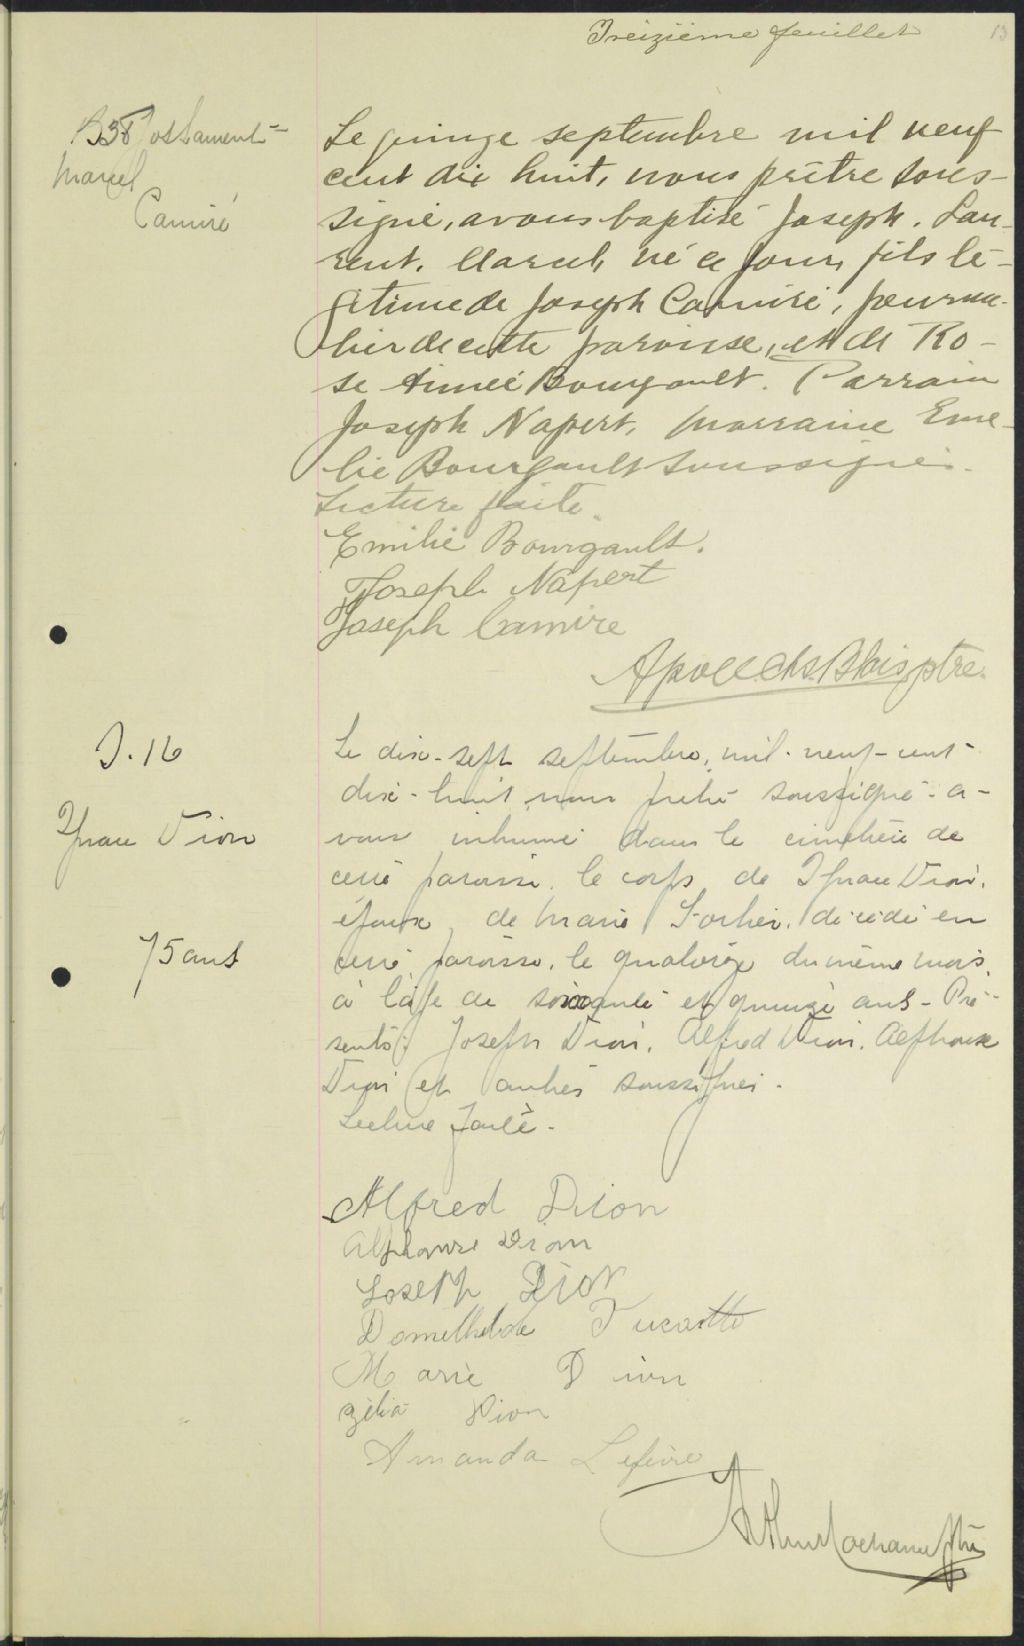 Treizième feuillet
13
B38 Jos Laurent
Marcel
Camiré
Le quinze septembre mil neuf
cent dix huit, nous prêtre sous-
signé, avons baptisé Joseph. Lau-
rent. Marcel, né ce jour, fils lé-
gitime de Joseph Camiré, journa-
lier de cette paroisse, et de Ro-
se Aimée Bourgault. Parrain
Joseph Napert, marraine Emé-
lie Bourgault soussignés.
Lecture faite.
Emilie Bourgault.
Joseph Napert
Joseph Camire
Blais ptre.
S. 16
Ignace Dion
75 ans
Le dix-sept septembre, mil-neuf-cent-
dix-huit nous prêtre soussigné a-
vons inhumé dans le cimetière de
cette paroisse, le corps de Ignace Dion,
époux de Marie Fortier, décédé en
cette paroisse, le quatorze du même mois,
à l'âge de soixante et quinze ans - Pré-
sents: Joseph Dion, Alfred Dion, Alphonse
Dion et autres soussignés.
Lecture faite.
Alfred Dion
Alphonse Dion
Joseph Dion
Domethilde Turcotte
Marie Dion
Zélia Dion
Amanda Lefèvre
Arthur ptre